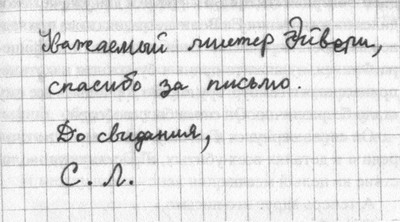 Уважаемый мистер Эйвери,
спасибо за письмо.
До свидания,
С. Л.